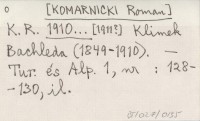 o [KOMARNICKI Roman]
K.R. 1910... [1911?] Klimek
Bachleda (1849-1910). —
Tur. és Alp. 1, nr : 128-
-130, il.